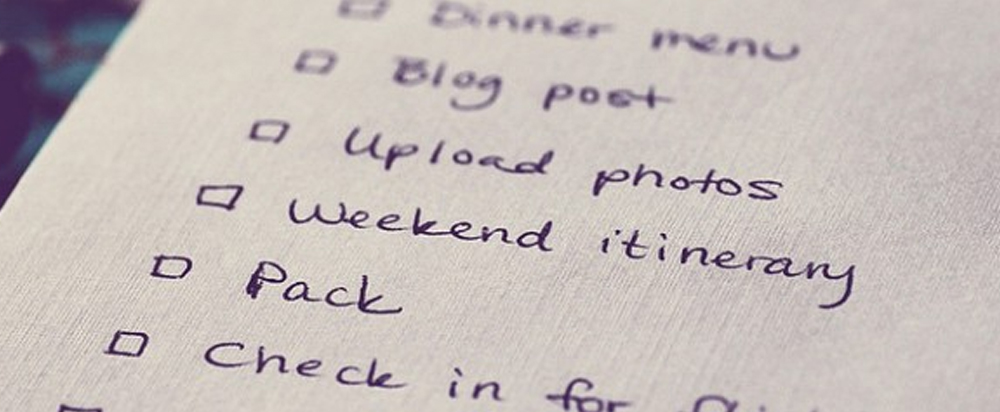 Dinner menu
Blog post
Upload photos
Weekend itinerary
Pack
Check in for